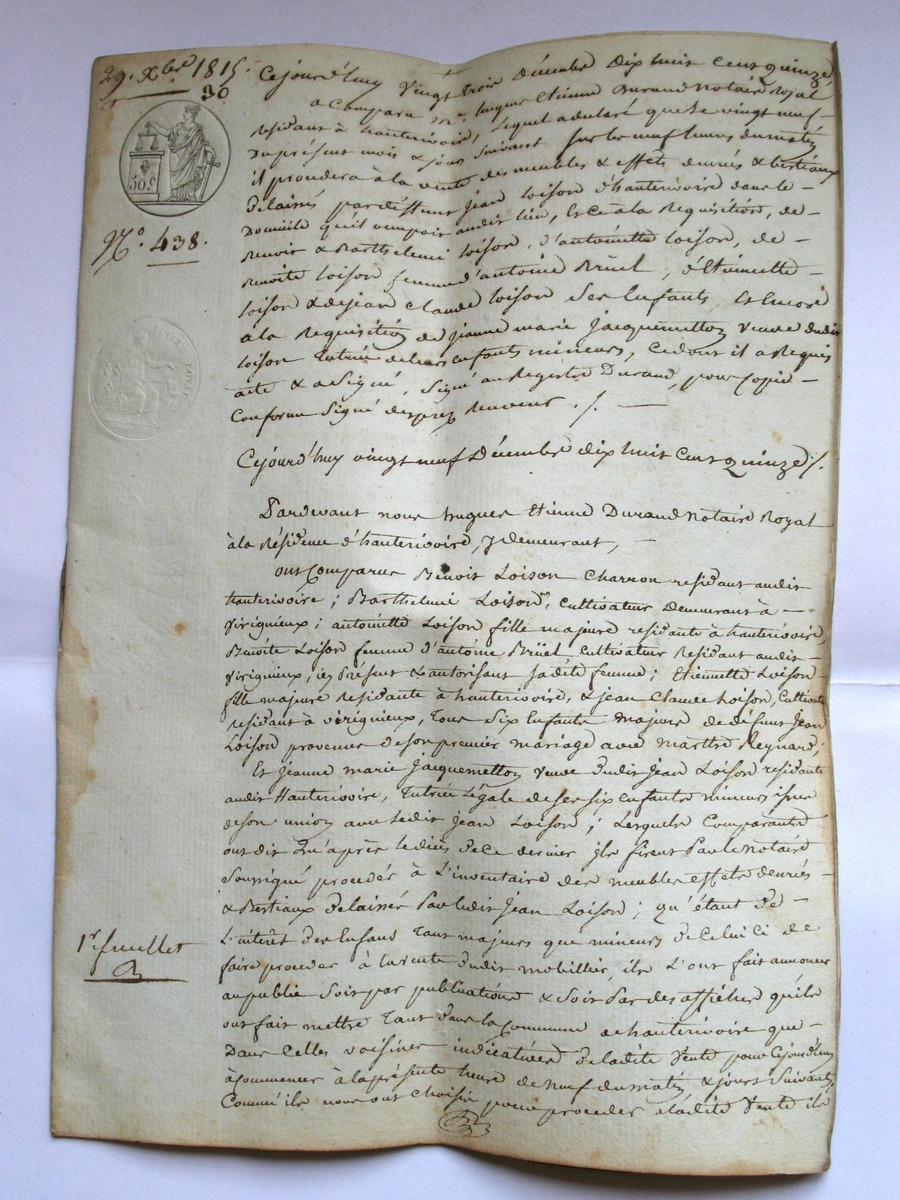 29. Xbre 1815.
30
50 c
N.o 438.
Cejourd'huy vingt trois décembre dix huit cent quinze
a Comparu Me. hugues Etienne Durand Notaire royal
residant à hauterivoire, lequel a declaré que le vingt neuf
Du présent mois & jours suivant sur les neuf heures du matin
il procedera à la vente des meubles & effets denrés & bestiaux
délaissés par déffunt Jean Loison d'hauterivoire dans le
Domicile qu'il occupoit audit lieu, & ce à la Requisition, de
Benoit & Barthelemi Loison, d'antoinette Loison, de
Benoite Loison femme d'antoine Brüel, d'Etiennette
Loison & de jean Claude Loison ses Enfants, Et Encore
à la Requisition de jeanne marie Jacquemetton veuve dudit
Loison Tutrice de leurs enfants mineurs, ce dont il a Requis
acte & a signé, Signé au Registre Durand, pour copie
Conforme Signé Receveur ./.
Cejourd'huy vingt neuf Décembre dix huit Cent Quinze ./.
Pardevant nous hugues Etienne Durand Notaire Royal
à la Résidence d'hauterivoire, y demeurant,
ont Comparus Benoit Loison Charron residant audit
hauterivoire; Barthelemi Loison, cultivateur demeurant à
virignieux; antoinette Loison fille majeure residante à hauterivoire,
Benoite Loison femme d'antoine Brüel Cultivateur Residant audit
virignieux, ici présent & autorisant sadite femme; Etiennette Loison
fille majeure Residante à hauterivoire, & jean Claude Loison, Cultivateur
residant à virignieux, Tous Six Enfants majeurs de défunt Jean
Loison provenus de son premier mariage avec marthe Reynard;
Et Jeanne marie Jacquemetton veuve dudit Jean Loison residante
audit Hauterivoire, Tutrice légale de ses six enfants mineurs issus
de son union avec ledit Jean Loison; Lesquels Comparants
ont dit qu'après le décès de ce dernier ils firent Par le Notaire
soussigné proceder à L'inventaire des meubles effets denrés
& Bestiaux delaissés Par ledit Jean Loison; qu'étant de
L'intérêt des Enfans Tant majeurs que mineurs de Celui ci de
faire proceder à la vente dudit mobillier, ils L'ont fait annoncer
au public Soit par publications & Soit Par des affiches qu'ils
ont fait mettre Tant dans la Commune de hauterivoire que
Dans Celles voisines indicatives de ladite vente pour Cejourd'huy
à commencer à la présente heure de neuf du matin & jours suivants
Comme ils nous ont choisi pour proceder à ladite vente ils
1r. feuillet